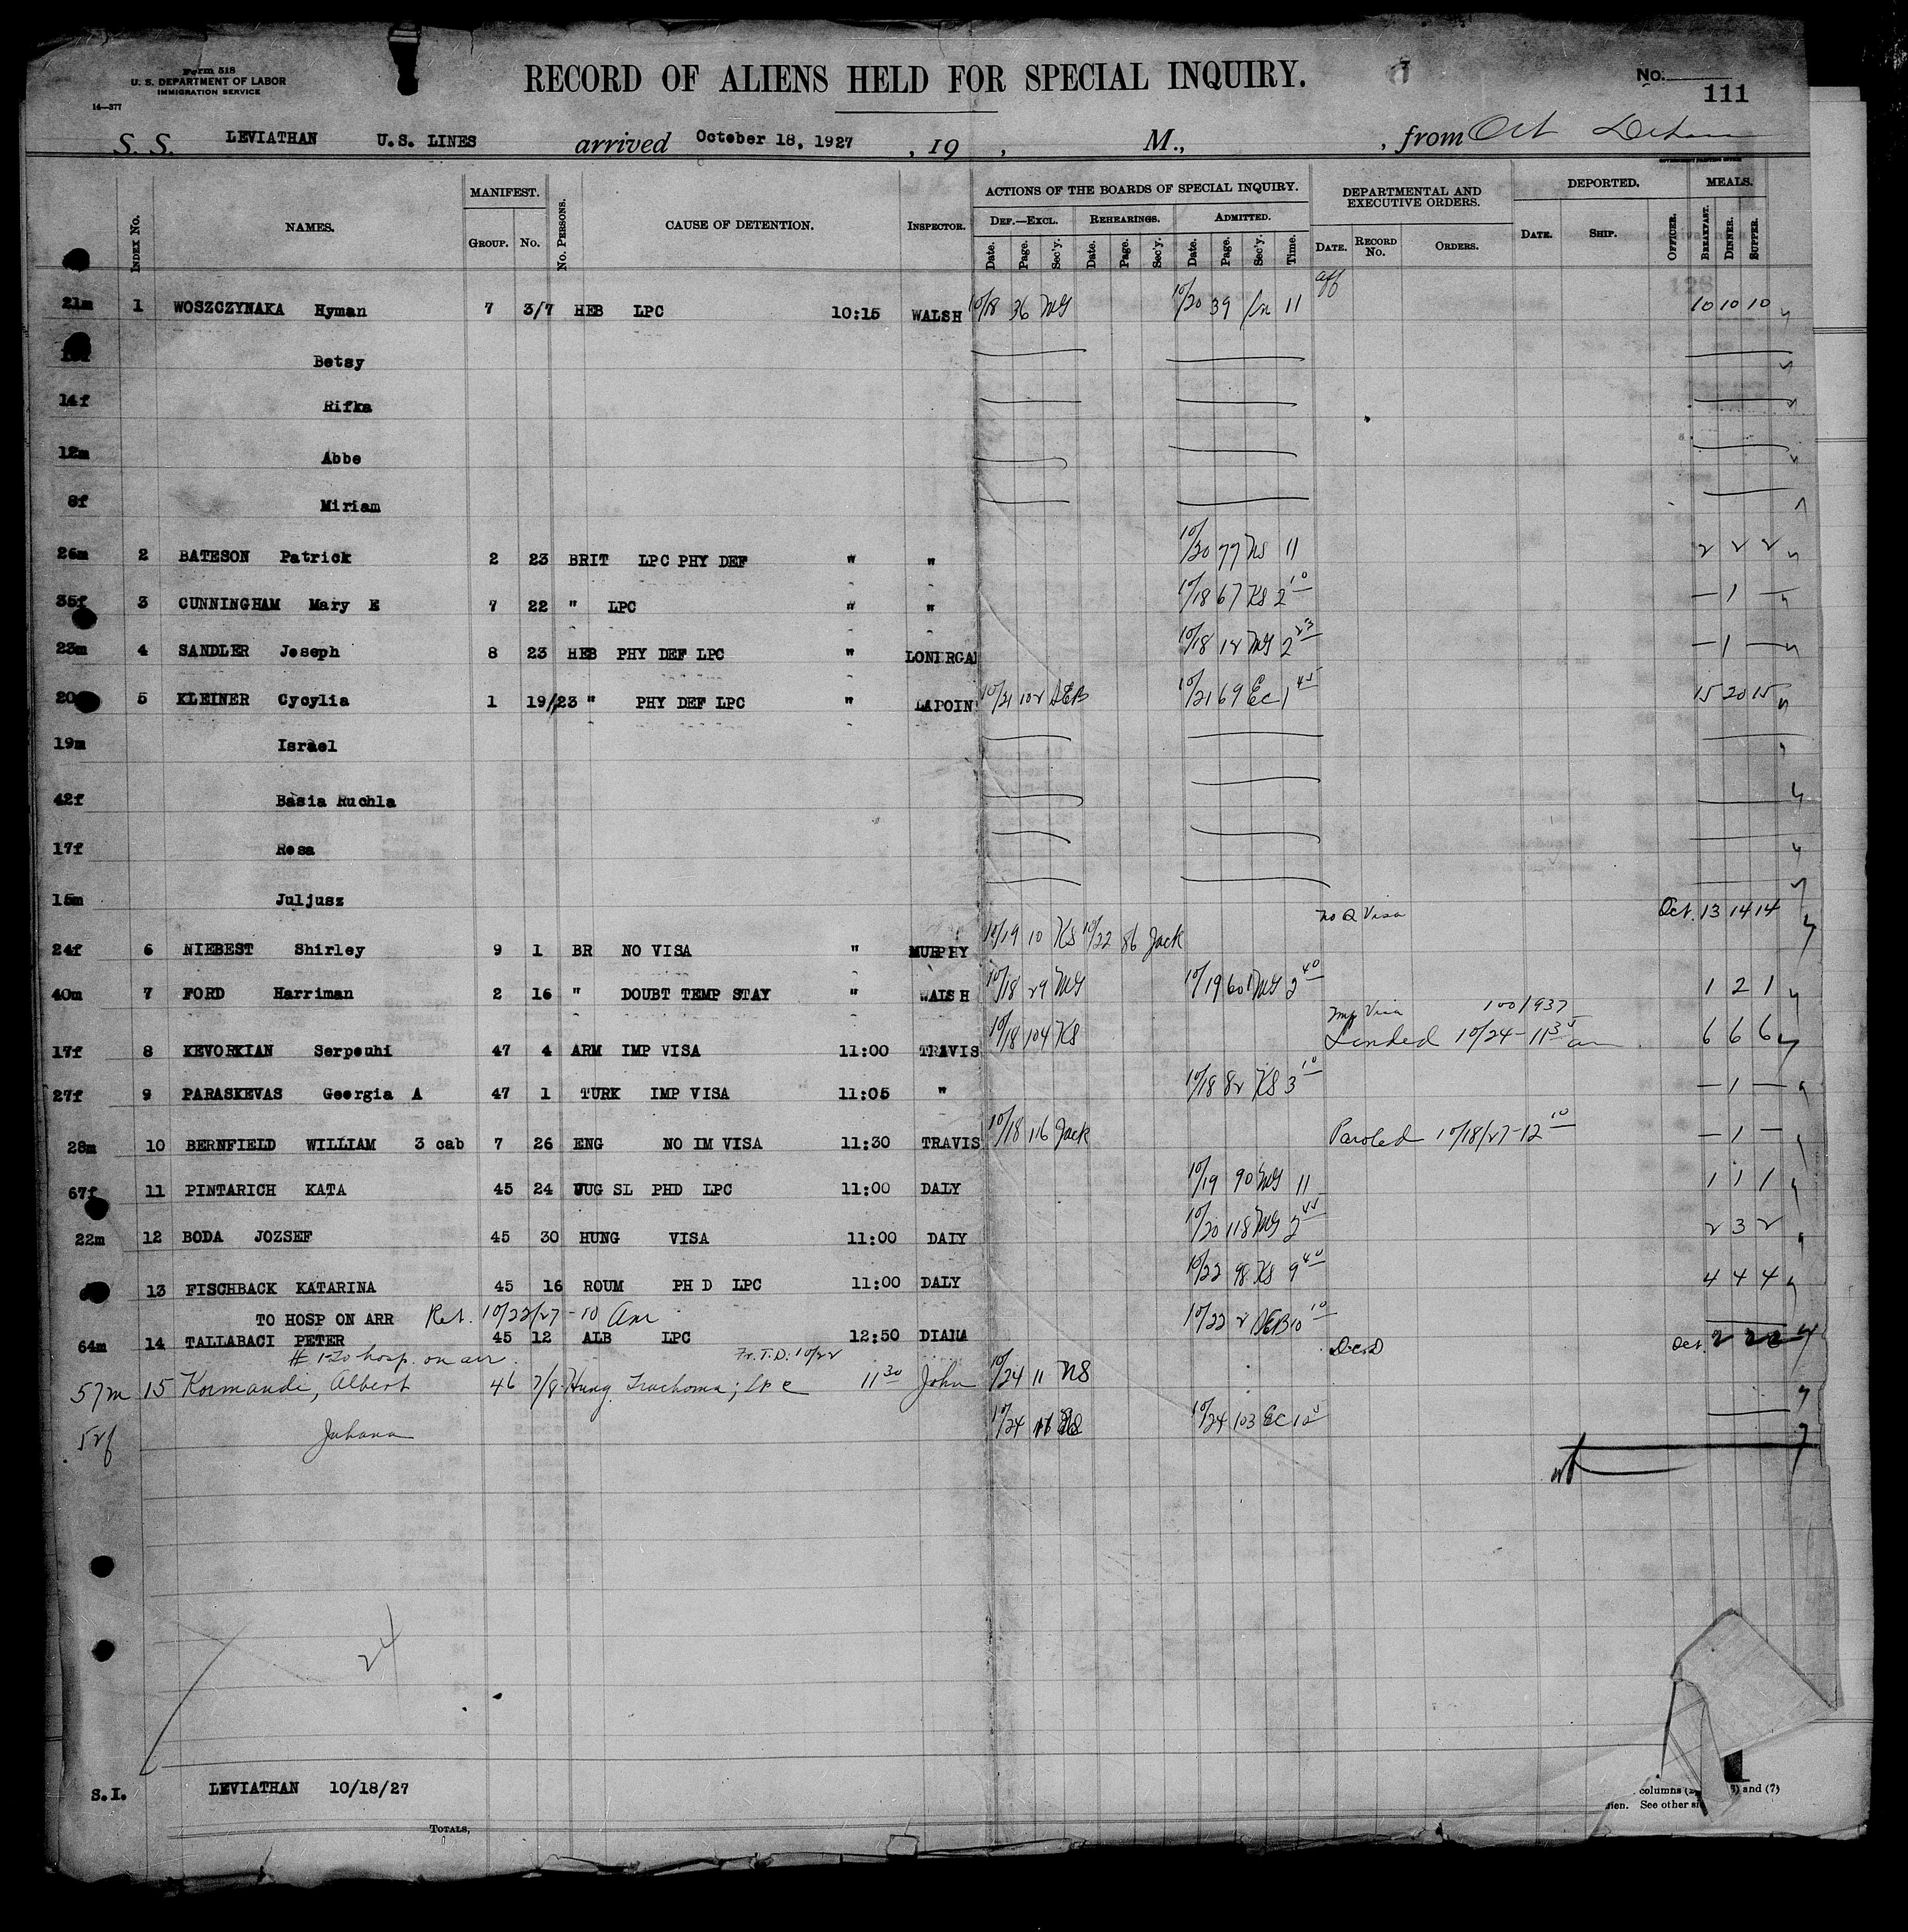 Form 518
U. S. DEPARTMENT OF LABOR
IMMIGRATION SERVICE
14—377
RECORD OF ALIENS HELD FOR SPECIAL INQUIRY.
No.
111
S. S. LEVIATHAN U.S. LINES arrived October 18, 1927 , 19 , M., , from
GOVERNMENT PRINTING OFFICE
INDEX No. NAMES. MANIFEST. GROUP. No. No. PERSONS. CAUSE OF DETENTION. INSPECTOR. ACTIONS OF THE BOARDS OF SPECIAL INQUIRY. DEF.—EXCL. Date. Page. Sec'y. REHEARINGS. Date. Page. Sec'y. ADMITTED. Date. Page. Sec'y. Time. DEPARTMENTAL AND EXECUTIVE ORDERS. DATE. RECORD No. ORDERS. DEPORTED. DATE. SHIP. OFFICER. MEALS. BREAKFAST. DINNER. SUPPER.
aff
21m 1 WOSZCZYNAKA Hyman 7 3/7 HEB LPC 10:15 WALSH 10/18 36 MG 10/20 39 11 10 10 10
Betsy
14f Rifka
12m Abbe
8f Miriam
26m 2 BATESON Patrick 2 23 BRIT LPC PHY DEF " " 10/20 77 NS 11 2 2 2
35f 3 CUNNINGHAM Mary E 7 22 " LPC " " 10/18 67 KS 2 10 — 1 —
23m 4 SANDLER Joseph 8 23 HEB PHY DEF LPC " LONERGAN 10/18 12 MG 2 23 — 1 —
20 5 KLEINER Cycylia 1 19/23 " PHY DEF LPC " LAPOIN 10/21 102 AEB 10/21 69 EC 1 45 15 20 15
19m Israel
42f Basia Ruchla
17f Rosa
15m Juljusz
no Q Visa Oct. 13 14 14
24f 6 NIEBEST Shirley 9 1 BR NO VISA " MURPHY 10/19 10 KS 10/22 86 Jack
40m 7 FORD Harriman 2 16 " DOUBT TEMP STAY " WALSH 10/18 29 MG 10/19 60 MG 2 40 1 2 1
Imp Visa 100/937
17f 8 KEVORKIAN Serpouhi 47 4 ARM IMP VISA 11:00 TRAVIS 10/18 104 KS Landed 10/24 - 11 35 am 6 6 6
27f 9 PARASKEVAS Georgia A 47 1 TURK IMP VISA 11:05 " 10/18 82 KS 3 10 — 1 —
28m 10 BERNFIELD WILLIAM 3 cab 7 26 ENG NO IM VISA 11:30 TRAVIS 10/18 116 Jack Paroled 10/18/27 - 12 10 — 1 —
67f 11 PINTARICH KATA 45 24 JUG SL PHD LPC 11:00 DALY 10/19 90 MG 11 1 1 1
22m 12 BODA JOZSEF 45 30 HUNG VISA 11:00 DALY 10/20 118 MG 2 45 2 3 2
13 FISCHBACK KATARINA 45 16 ROUM PH D LPC 11:00 DALY 10/22 98 KS 9 40 4 4 4
TO HOSP ON ARR Ret. 10/22/27 - 10 Am
64m 14 TALLABACI PETER 45 12 ALB LPC 12:50 DIANA 10/22 2 AEB 10 10 Oct. 2 2 2
# 1 To hosp. on arr. Fr. T.D. 10/22
57m 15 Kormandi, Albert 46 7/8 Hung Trachoma; lpc 11 30 John 10/24 11 NS
52f Juhana 10/24 11 10/24 103 EC 12
24
S.I. LEVIATHAN 10/18/27
columns ) and (7)
See other
TOTALS,